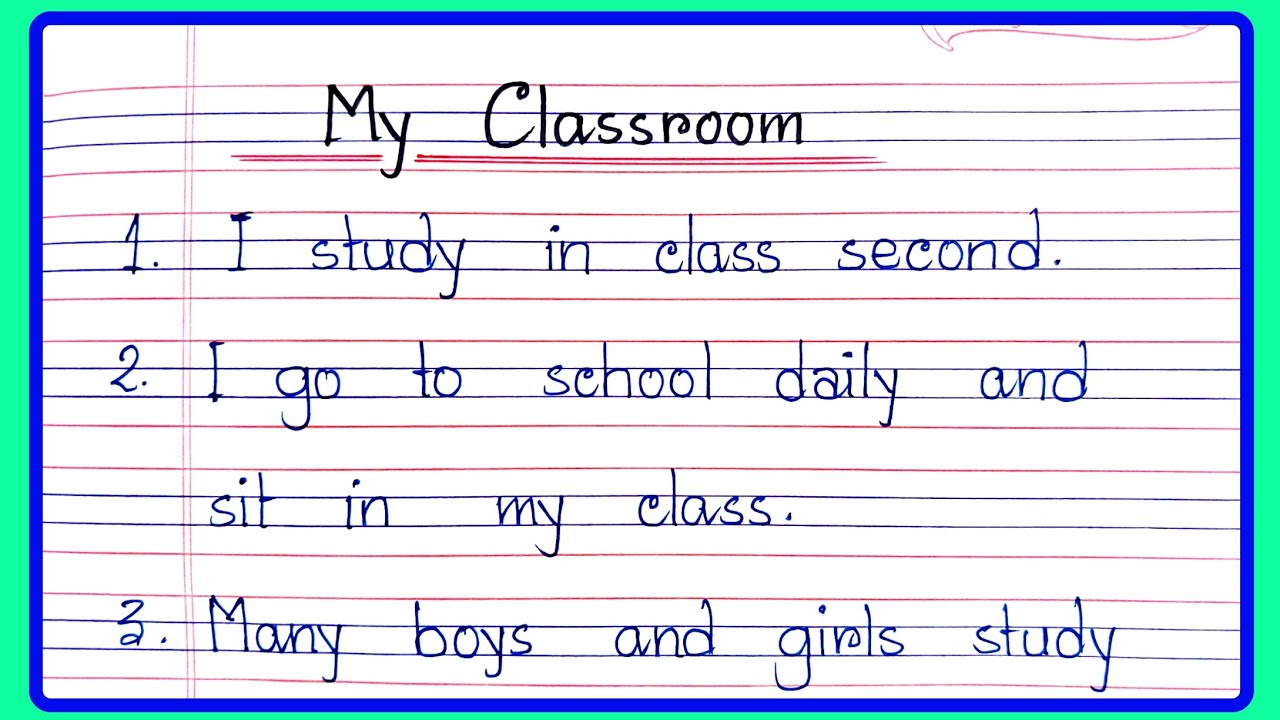 My Classroom
1. I study in class second.
2. I go to school daily and
sit in my class.
3. Many boys and girls study